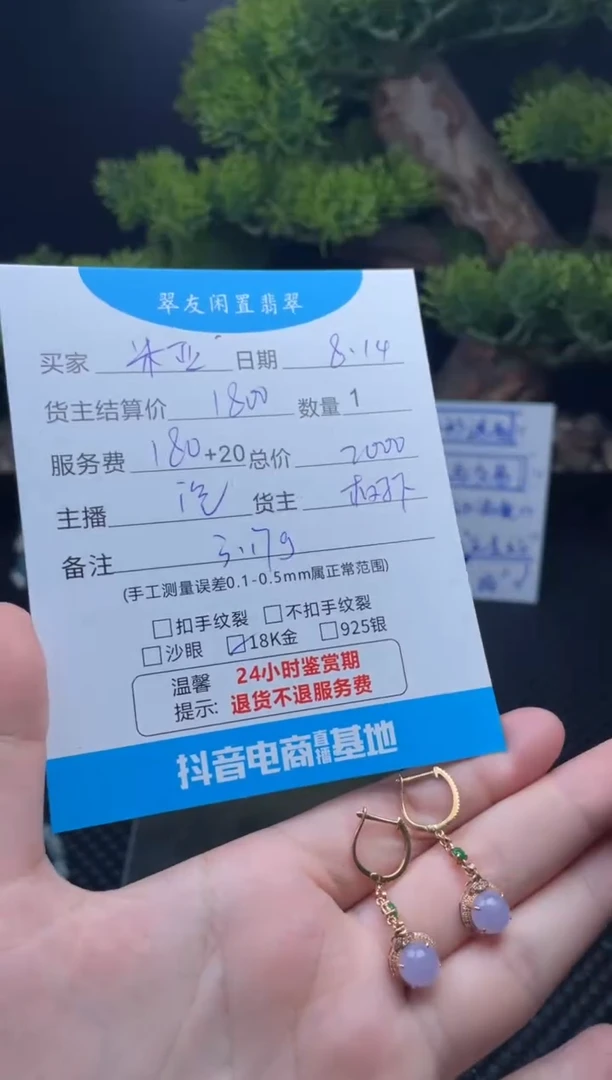 翠友闲置翡翠
买家 米亚 日期 8.14
货主结算价 1800 数量 1
服务费 180+20 总价 2000
主播 货主
备注 3.17g
(手工测量误差0.1-0.5mm属正常范围)
□扣手纹裂 □不扣手纹裂
□沙眼 ☑18K金 □925银
温馨 24小时鉴赏期
提示: 退货不退服务费
抖音电商直播基地